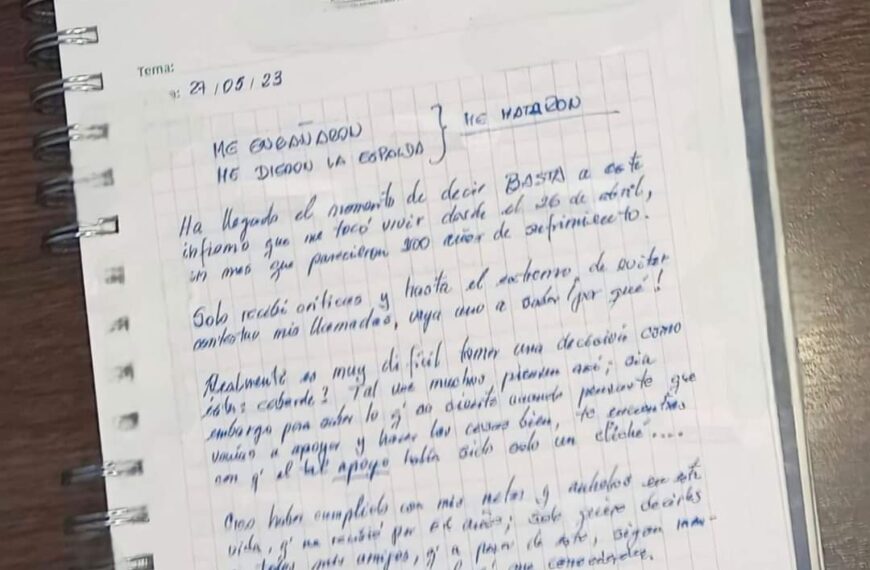 Tema:
27/05/23
ME ENGAÑARON
ME DIERON LA ESPALDA } ME MATARON
Ha llegado el momento de decir BASTA a este
infierno que me tocó vivir desde el 26 de abril,
un mes que parecieron 100 años de sufrimiento.
Solo recibí críticas y hasta el extremo, de evitar
contestar mis llamadas, vaya uno a saber ¡por qué!
Realmente es muy difícil tomar una decisión como
ésta: cobarde? Tal vez muchos, piensen así; sin
embargo para saber lo q' se siente cuando pensaste que
venían a apoyar y hacer las cosas bien, te encuentras
con q' el tal apoyo había sido solo un cliché....
Creo haber cumplido con mis metas y anhelos en esta
vida, q' me recibió por años; solo quiero decirles
a todos mis amigos, q' a pesar de esto, sigan